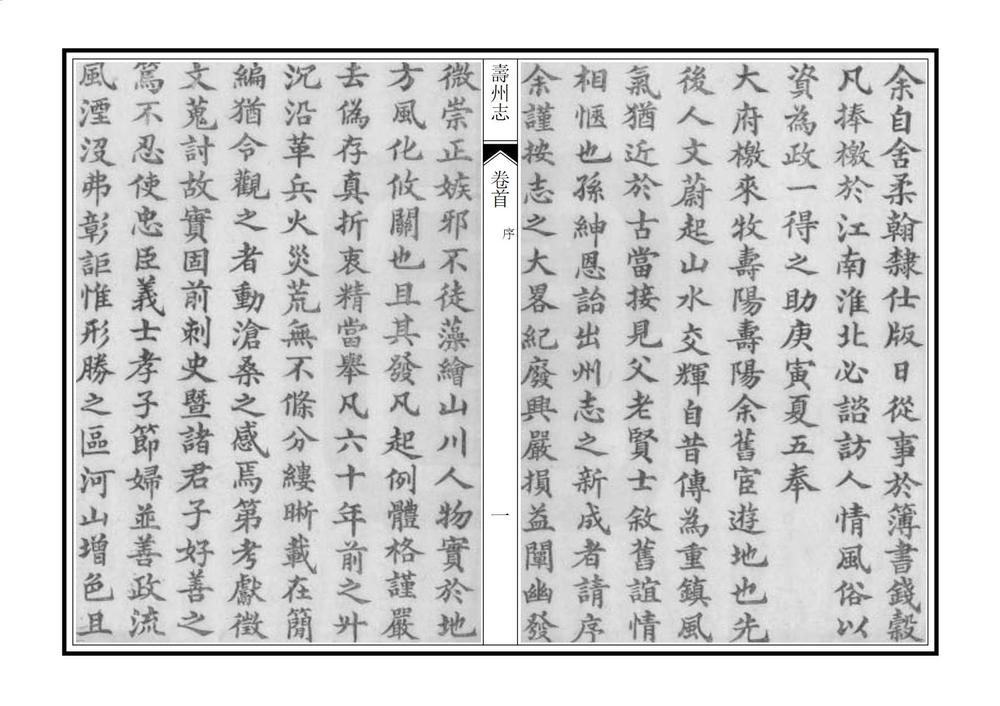 余自舍柔翰隸仕版日從事於簿書錢穀
凡捧檄於江南淮北必諮訪人情風俗以
資為政一得之助庚寅夏五奉
大府檄來牧壽陽壽陽余舊宦遊地也先
後人文蔚起山水交輝自昔傳為重鎮風
氣猶近於古當接見父老賢士敘舊誼情
相愜也孫紳恩詒出州志之新成者請序
余謹按志之大畧紀廢興嚴損益闡幽發
壽州志
卷首
序
一
微崇正嫉邪不徒藻繪山川人物實於地
方風化攸關也且其發凡起例體格謹嚴
去偽存真折衷精當舉凡六十年前之廾
沉沿革兵火災荒無不條分縷晰載在簡
編猶令觀之者動滄桑之感焉第考獻徵
文蒐討故實固前刺史暨諸君子好善之
篤不忍使忠臣義士孝子節婦並善政流
風湮沒弗彰詎惟形勝之區河山增色且